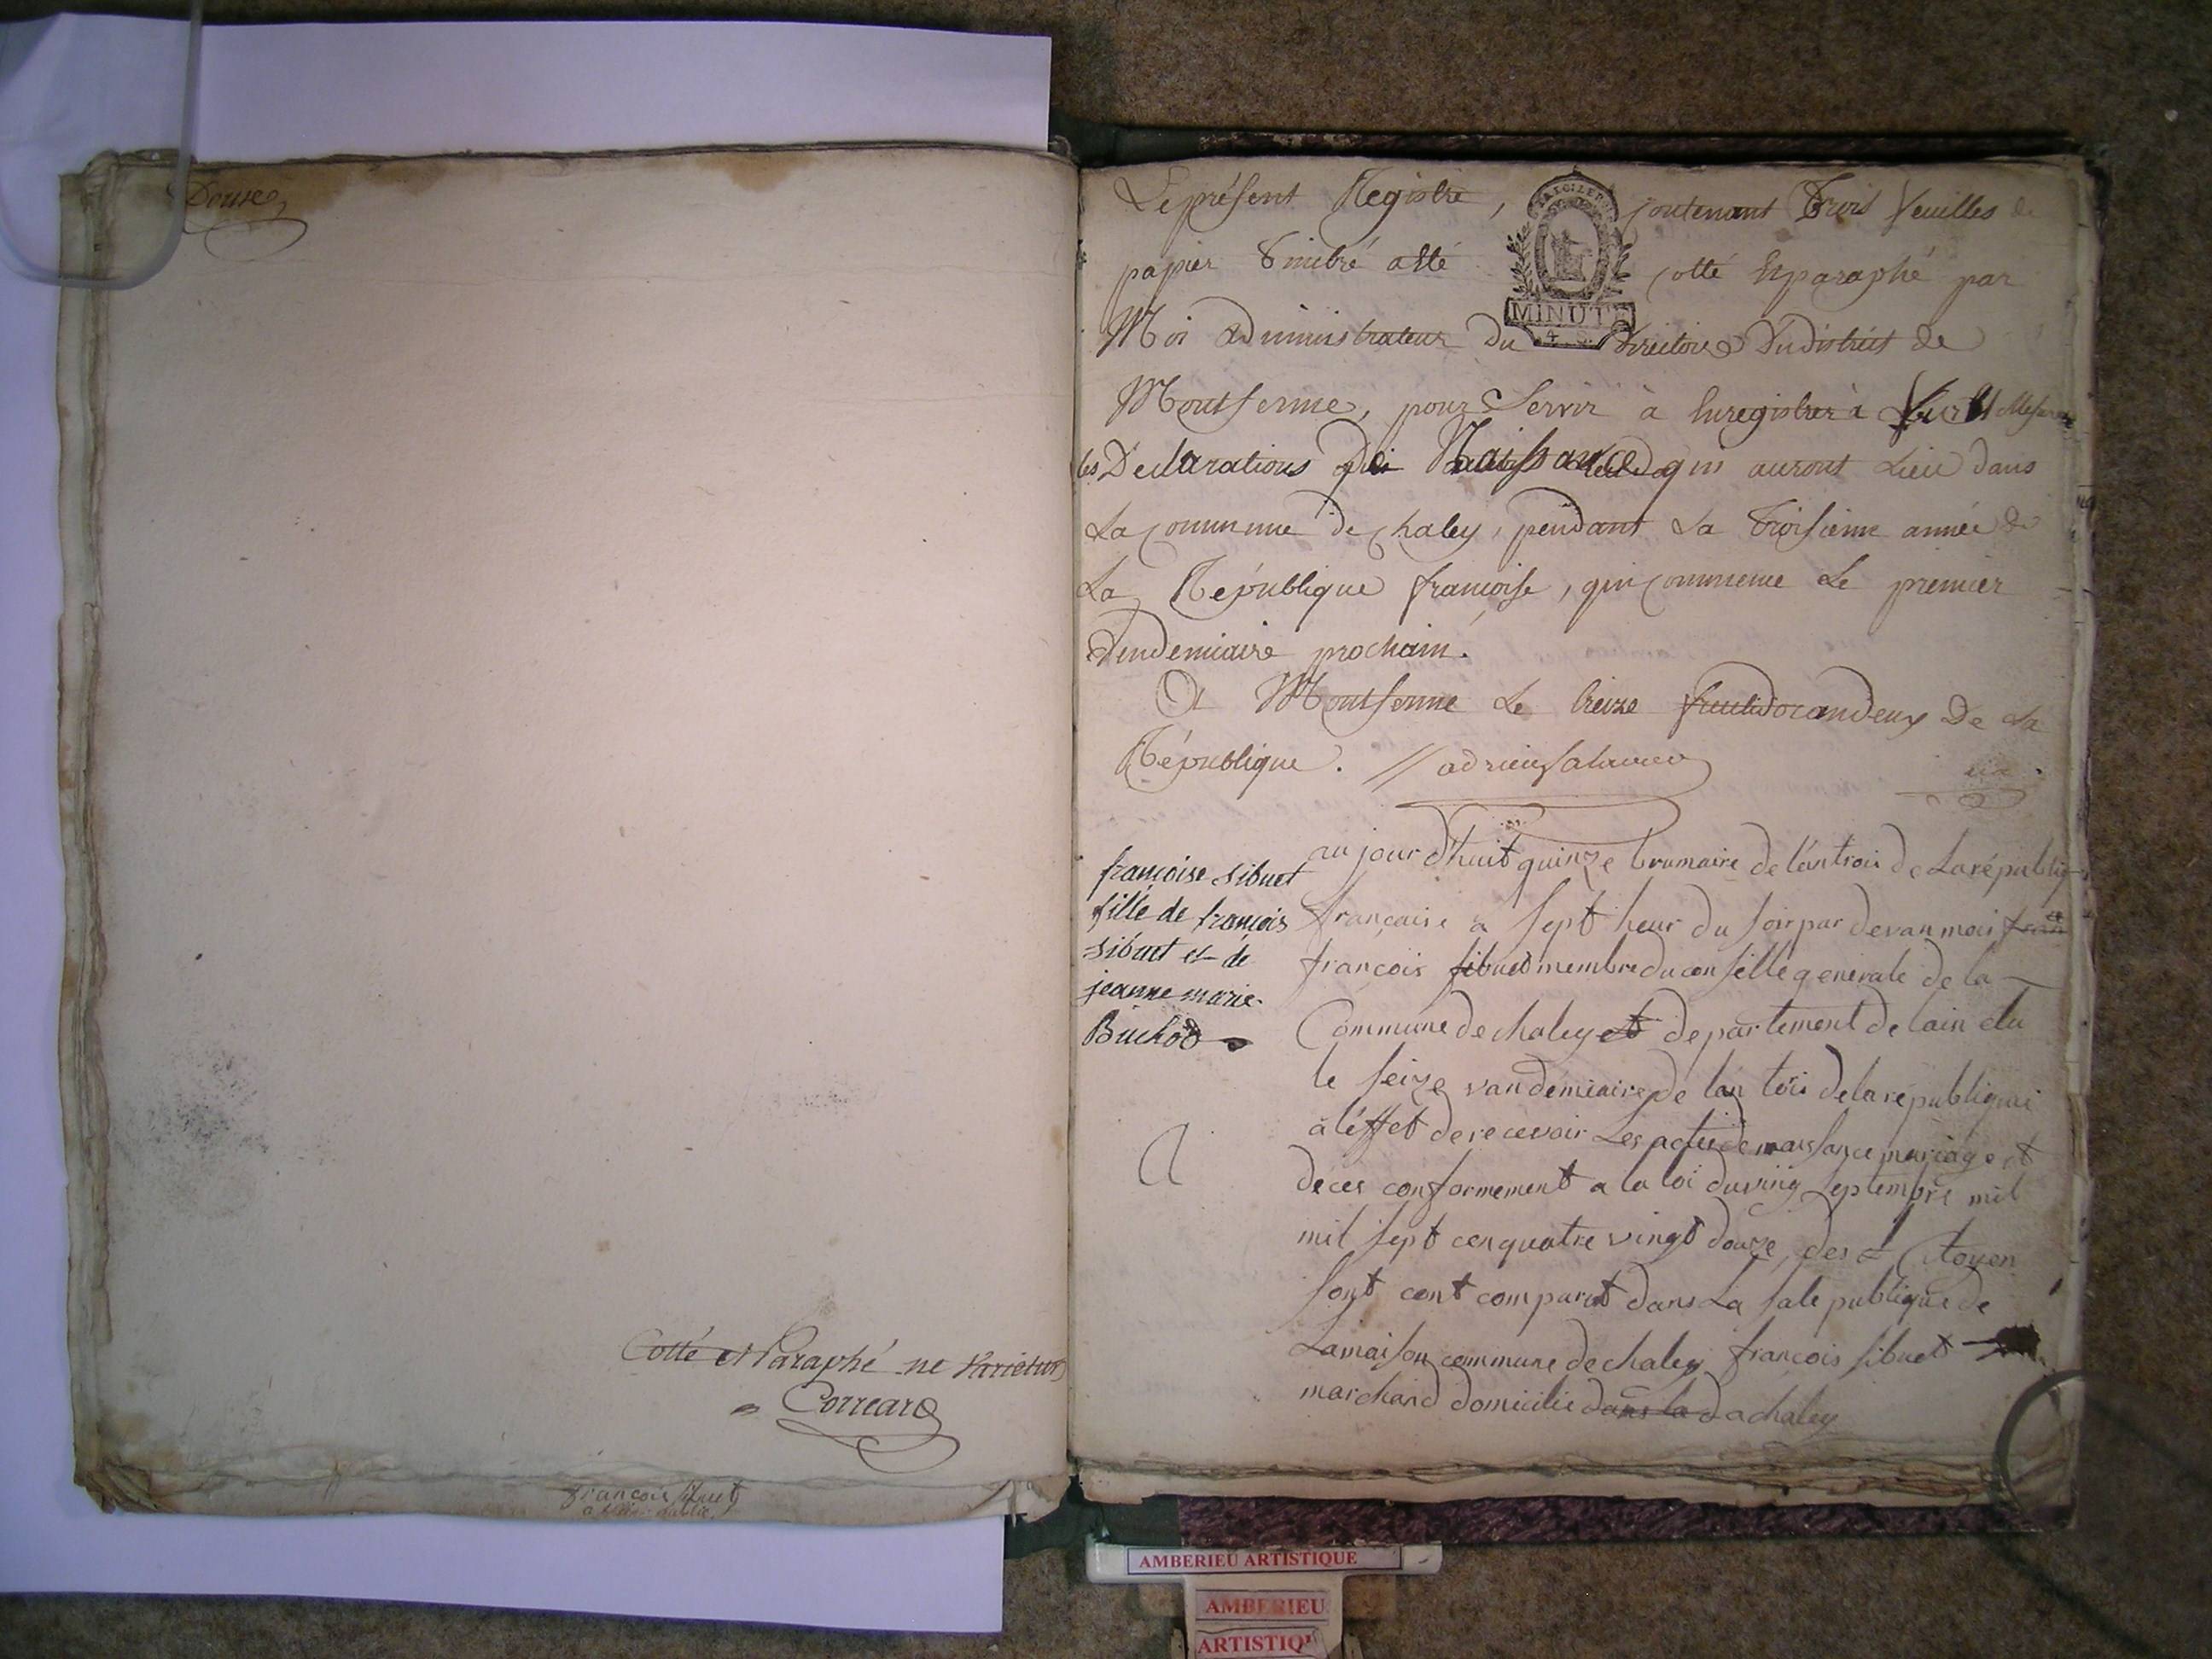 Douze
Cotté et Paraphé ne varietur
Correard
françois sibuet
Le présent Registre, contenant Trois feuilles de
papier Timbré a Eté cotté Et paraphé par
MINUTE
4 S
Moi administrateur du directoire du district de
Montferme, pour Servir à Enregistrer à
les Declarations de Naissance qui auront Lieu dans
La commune de chaley, pendant La Troisieme année de
La République françoise, qui commence Le premier
Vendemiaire prochain.
A Montferme Le treize fructidor an deux De La
République.
françoise sibuet
fille de françois
sibuet et de
jeanne marie
Buchod
aujourd'huit quinze brumaire de lan trois de La républiq
française a sept heur du soir par devan moi fran
françois sibuet membre du conseille generale de la
Commune de chaley et departement de lain elu
le seize vandémiaire de lan tois de la république
a léffet de recevoir Les actes de naissance mariage et
décés conformement a la loi du ving septembre mil
mil sept cen quatre vingt douze des Citoyen
sont cont comparut dans La sale publique de
La maison commune de chaley françois sibuet
marchand domicilié dans la d a chaley
AMBERIEU ARTISTIQUE
AMBERIEU
ARTISTIQU